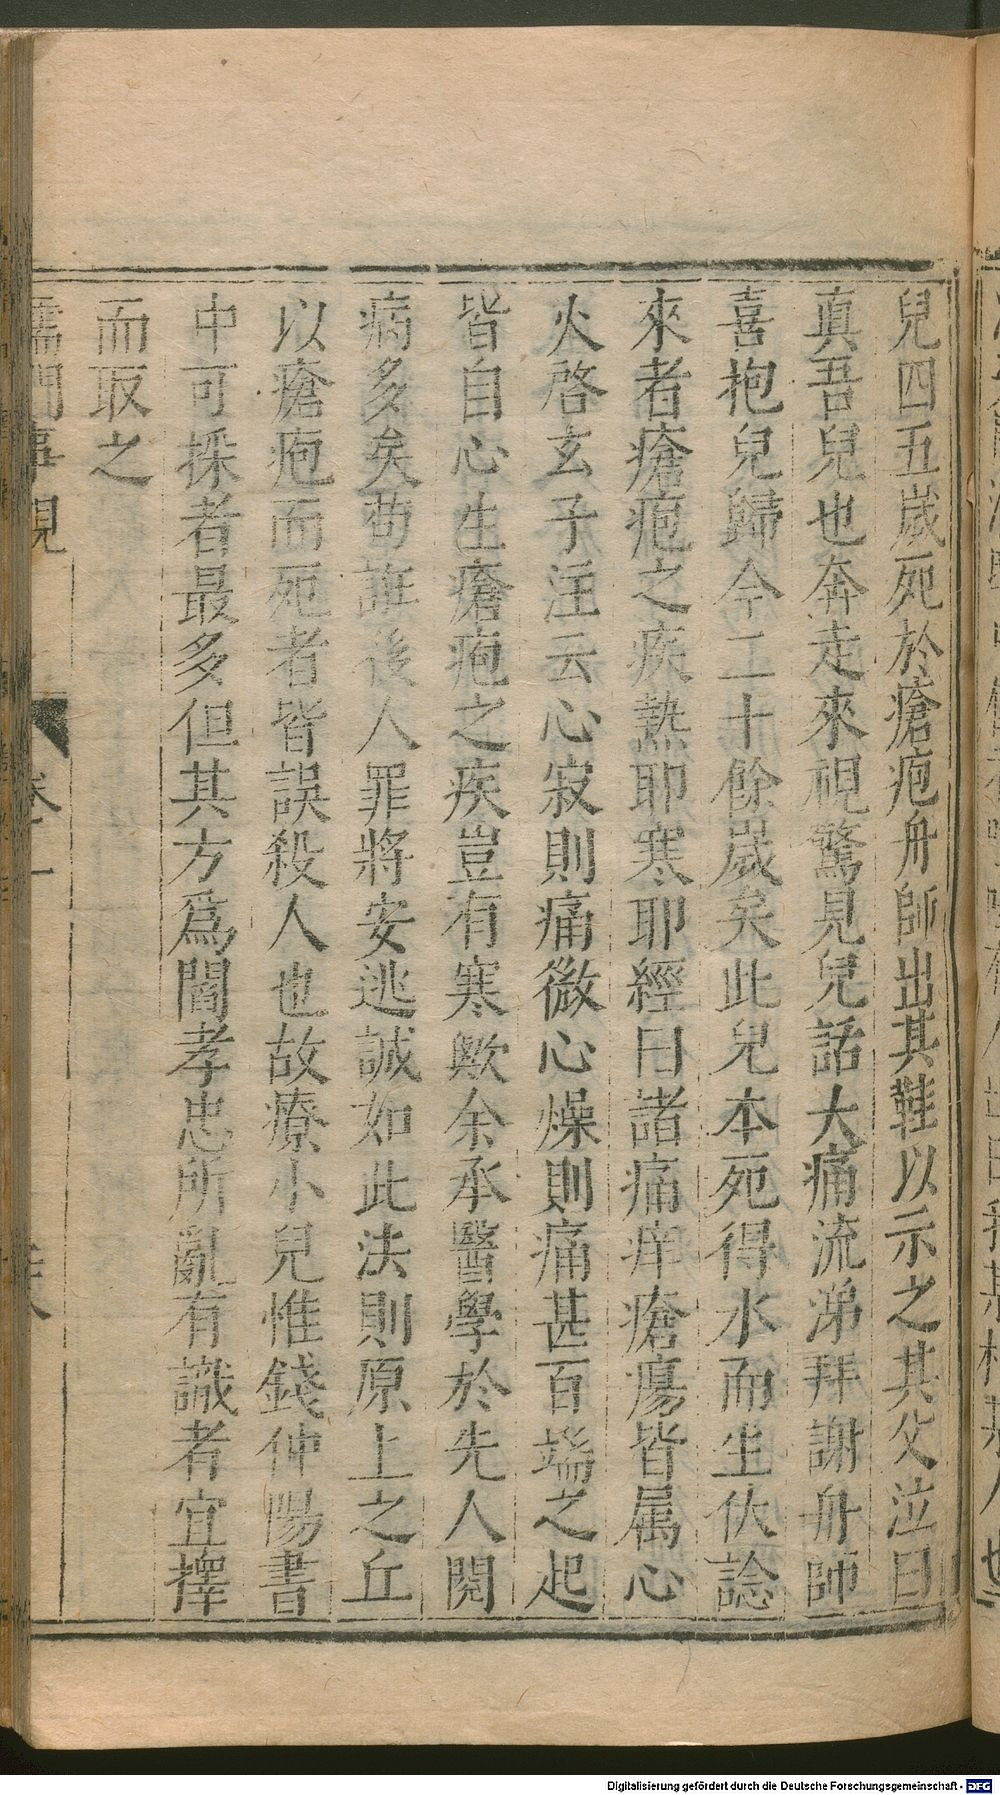 兒四五歲死於瘡疱舟師出其鞋以示之其父泣曰
真吾兒也奔走來視驚見兒話大痛流涕拜謝舟師
喜抱兒歸今二十餘歲矣此兒本死得水而生伏諗
來者瘡疱之疾熱耶寒耶經曰諸痛痒瘡瘍皆属心
火啓玄子注云心寂則痛微心燥則痛甚百端之起
皆自心生瘡疱之疾豈有寒歟余承醫學於先人閱
病多矣苟誑後人罪將安逃誠如此法則原上之丘
以瘡疱而死者皆誤殺人也故療小兒惟錢仲陽書
中可採者最多但其方爲閻孝忠所亂有識者宜擇
而取之
儒門事親 卷一
Digitalisierung gefördert durch die Deutsche Forschungsgemeinschaft - DFG